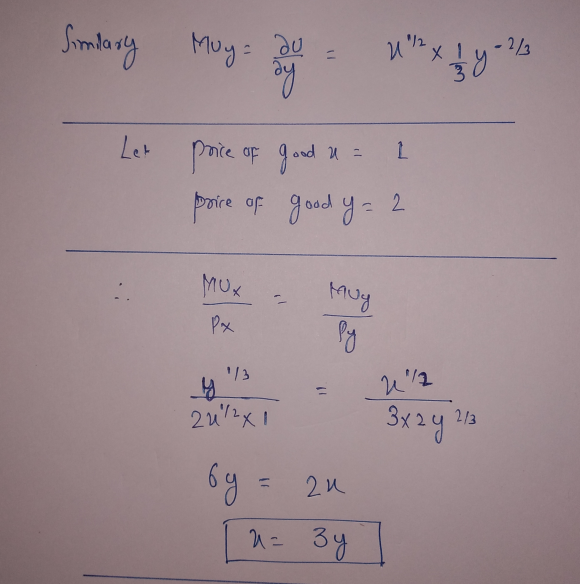 Similary MUy = ∂U/∂y = x^1/2 × 1/3 y^-2/3
Let price of good x = 1
price of good y = 2
∴ MUx/Px = MUy/Py
y^1/3 / 2x^1/2 × 1 = x^1/2 / 3×2y^2/3
6y = 2x
x = 3y